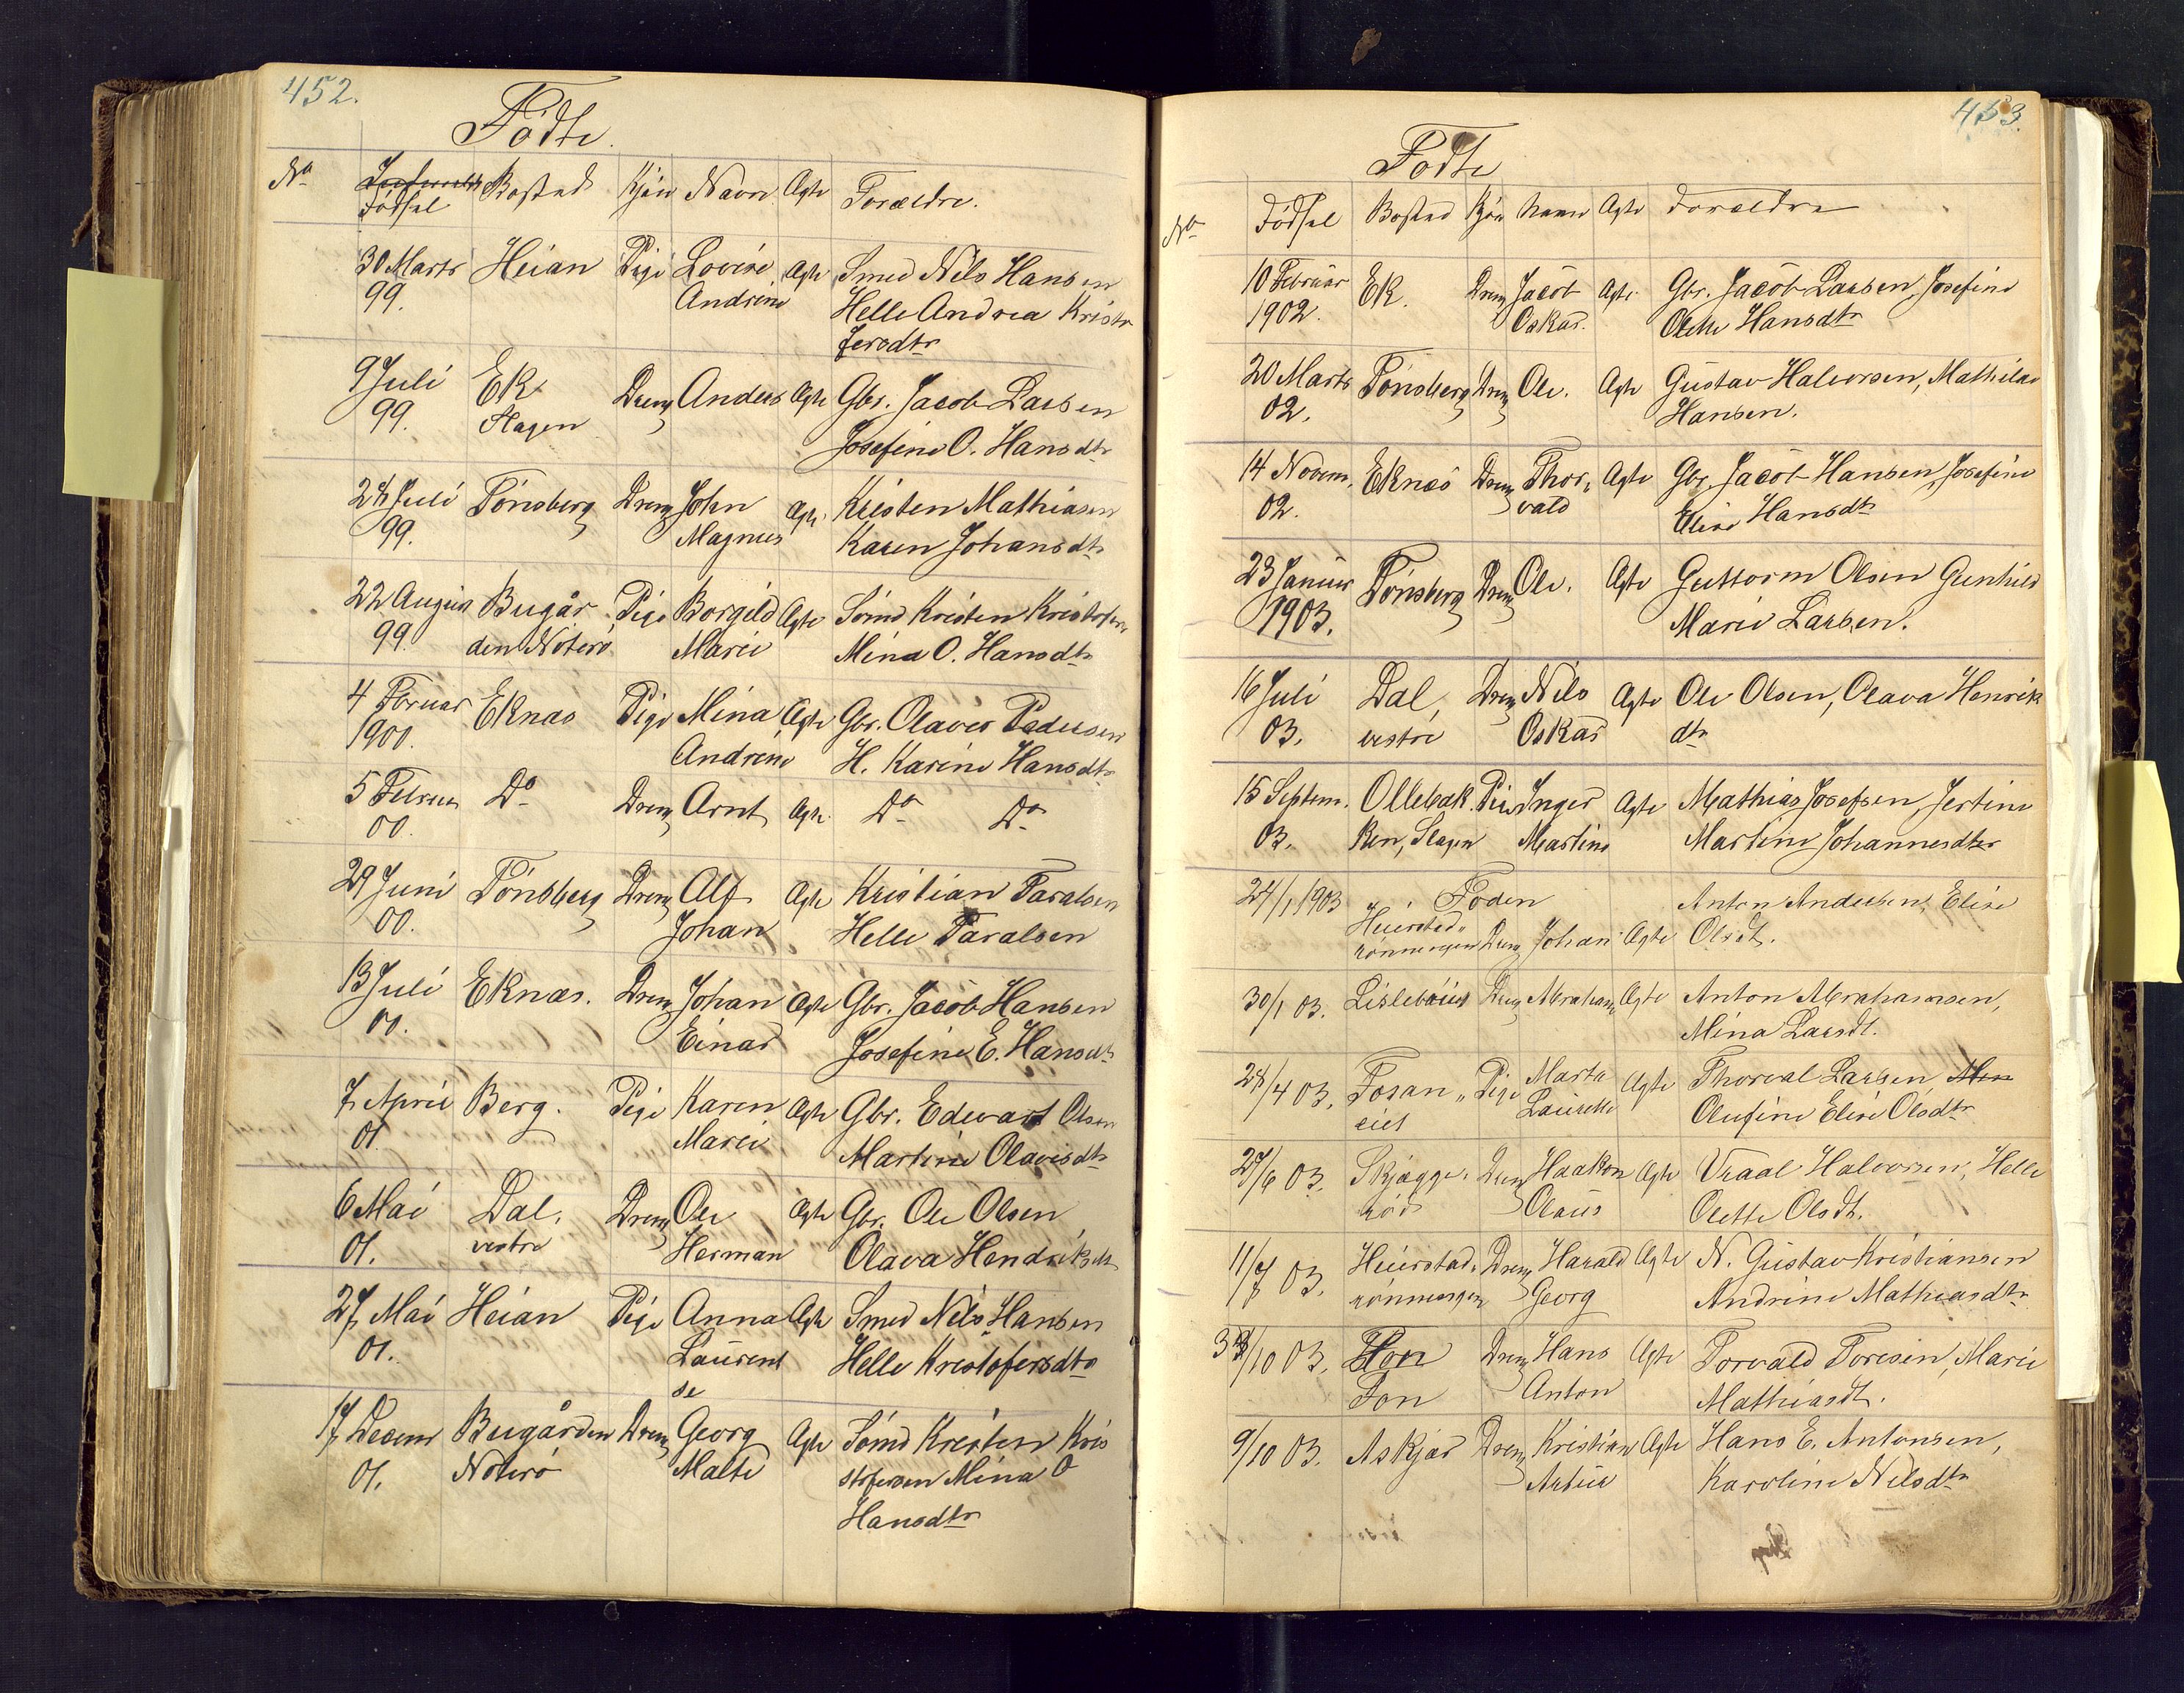 452.
Födte.
No Fødsel Bosted Kjön Navn Ægte Forældre.
30 Marts Heian Pige Lovise Ægte Smed Nils Hansen
99. Andrine Helle Andrea Kristo
fersdtr
9 Juli Ek Dreng Anders Ægte Gbr. Jacob Larsen
99. Slagen Josefine O. Hansdtr
24 Juli Tönsberg Dreng John Ægte Kristen Mathiasen
99. Magnus Karen Johansdtr
22 August Bugår Pige Borgild Ægte Sömd Kristen Kristofersen
99. den Nöterö Marie Mina O. Hansdtr
4 Februar Eknæs Pige Mina Ægte Gbr. Olaves Pedersen
1900. Andrine H. Karine Hansdtr
5 Februar Do Dreng Arnt Ægte Do Do
00.
29 Juni Tönsberg Dreng Alf Ægte Kristian Taralsen
00. Johan Helle Taralsen
13 Juli Eknæs. Dreng Johan Ægte Gbr. Jacob Hansen
Einar Josefine E. Hansdtr
7 April Berg. Pige Karen Ægte Gbr. Edevart Olsen
01 Marie Martine Olavesdtr
6 Mai Dal, Dreng Ole Ægte Gbr. Ole Olsen
01. vestre Herman Olava Hendriksdtr
27 Mai Heian Pige Anna Ægte Smed Nils Hansen
01. Laurent Helle Kristofersdtr
se
17 Decem Bugården Dreng Georg Ægte Sömd Kristen Kris
01. Nöterö Malte stofersen Mina O
Hansdtr
453.
Födte
No Födsel Bosted Kjön Navn Ægte Forældre
10 Februar Ek. Dreng Jacob Ægte Gbr. Jacob Larsen, Josefine
1902. Oskar. Olette Hansdtr
20 Marts Tönsberg Dreng Ole. Ægte Gustav Halvorsen, Mathilde
02. Hansen.
14 Novem. Eknæs Dreng Thor- Ægte Gbr. Jacob Hansen, Josefine
02. vald Elise Hansdtr
23 Januar Tönsberg Dreng Ole. Ægte Guttorm Olsen Gunhild
1903. Marie Larsen.
16 Juli Dal, Dreng Nils Ægte Ole Olsen, Olava Henrik
03. vestre Oskar dtr
15 Septem. Ollebak Pige Inger Ægte Mathias Josefsen, Jertine
03. ken, Slagen Martine Martine Johannesdtr
24/1 1903 Foden Anton Andersen, Elise
Heierstad-
rönningen Dreng Johan Ægte Olsdt.
30/1 03. Dreng Abraham Ægte Anton Abrahamsen,
Mina Larsdt.
24/4 03. Fosan- Pige Marta Ægte Thorval Larsen,
eiet Laurette Olufine Elise Olsdtr
27/6 03. Skjægge- Dreng Haakon Ægte Vraal Halvorsen, Helle
röd Olaus Olette Olsdt.
11/7 03. Heierstad- Dreng Harald Ægte N. Gustav Kristiansen
rönningen Georg Andrine Mathiasdtr
3/10 03. Dreng Hans Ægte Torvald Toresen, Marie
Fon Anton Mathiasdt.
9/10 03. Askjær Dreng Kristian Ægte Hans E. Antonsen,
Artur Karoline Nilsdtr